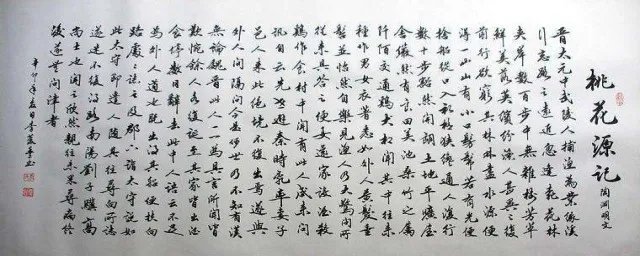 桃花源记
陶渊明文
晋太元中武陵人捕渔為業缘溪
行忘路之遠近忽逢桃花林
夹岸數百步中無雜樹芳草
鮮美落英缤纷漁人甚異之復
前行欲窮其林林盡水源便
得一山山有小口髣髴若有光便
捨船從口入初極狭纔通人復行
數十步豁然開朗土地平曠屋
舍儼然有良田美池桑竹之属
阡陌交通鷄犬相聞其中往来
種作男女衣著悉如外人黄髮垂
髫並怡然自樂見漁人乃大驚問所
從来具答之便要還家設酒殺
鷄作食村中聞有此人咸来問
訊自云先世避秦時亂率妻子
邑人来此绝境不復出焉遂與
外人间隔問今是何世乃不知有漢
無論魏晋此人一一為具言所聞皆
歎惋餘人各復延至其家皆出酒
食停數日辭去此中人語云不足
為外人道也既出得其船便扶向
路處處誌之及郡下詣太守説如
此太守即遣人随其往尋向所誌
遂迷不復得路南陽劉子驥高
尚士也聞之欣然親往未果尋病终
後遂無問津者
辛卯年